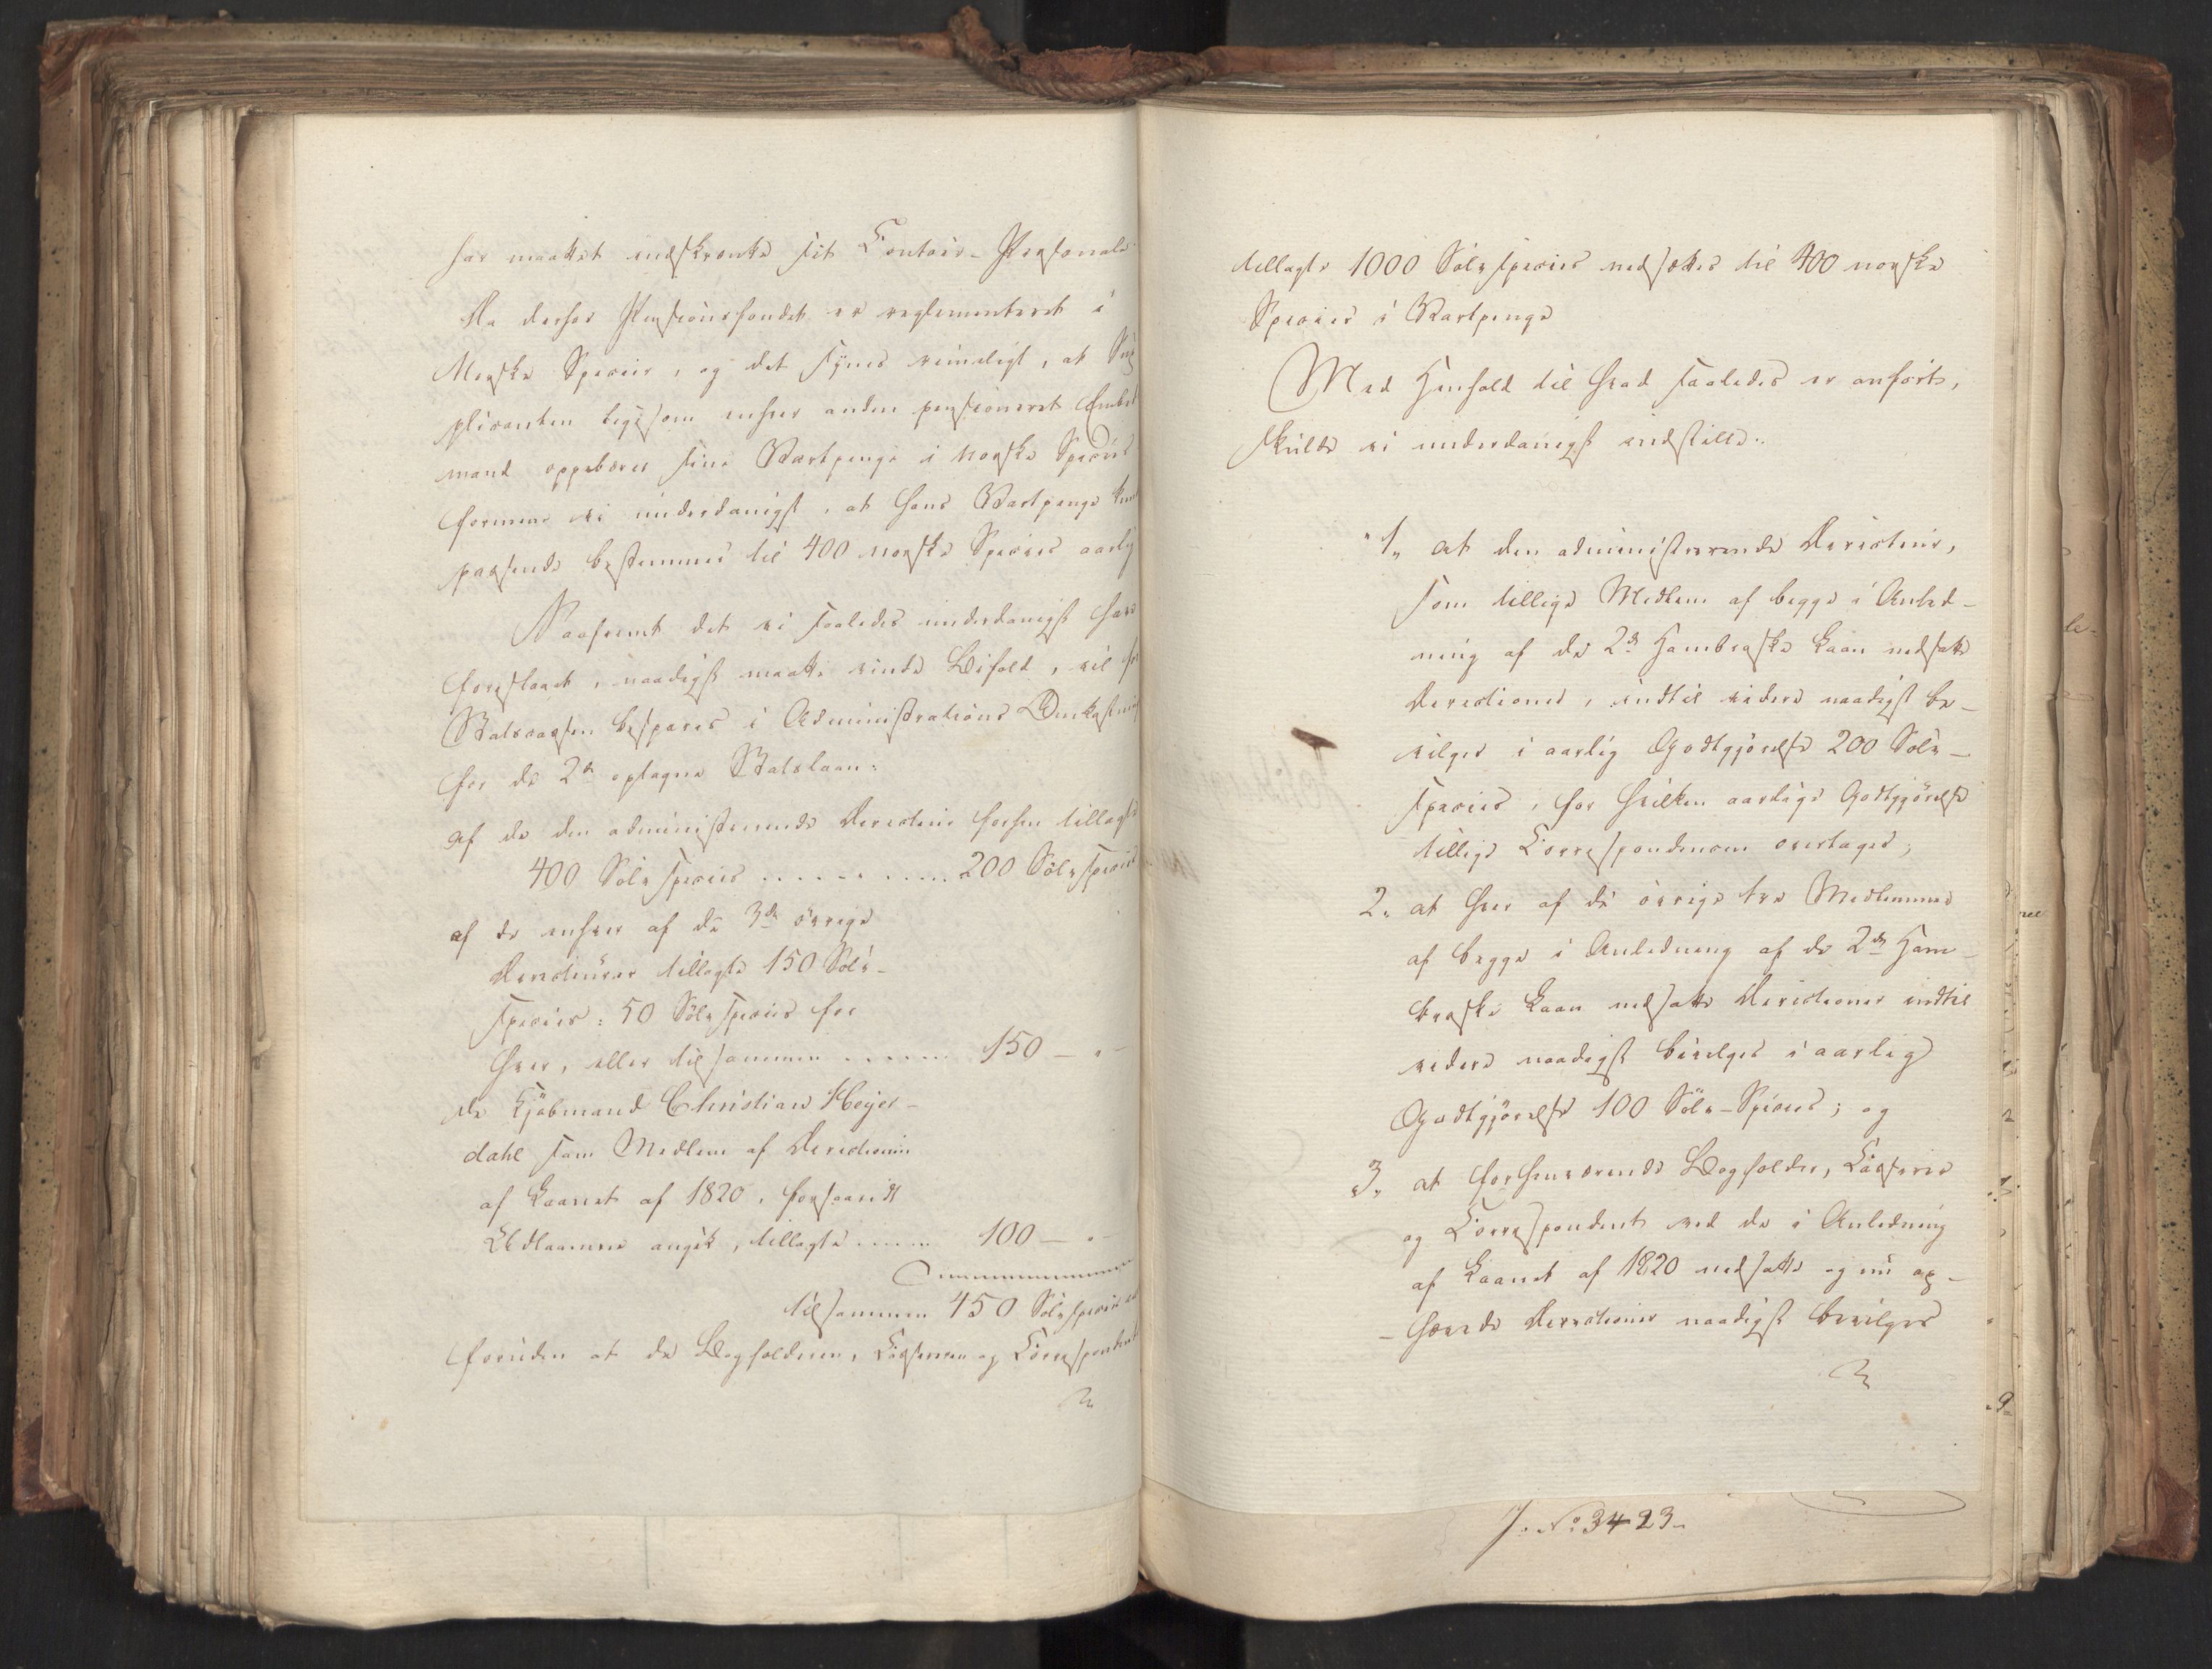 har maattet indskrænke sit Contoir-Personale
Da derhos Pensionsfondet er reglementeret i
Norske Species, og det synes rimeligt, at Sup
plicanten ligesom enhver anden pensioneret Embed
mand oppebærer sine Vartpenge i norske Species
formene vi underdanigst, at hans Vartpenge kun
passende bestemmes til 400 norske Species aarlig
Naafremt det vi saaledes underdanigst have
foreslaaet, naadigst maatte vinde Bifald, vil
Statscassen bespares i Administrations Omkostning
for de 2de optagne Statslaan:
af de den administrerende Directeur forhen tillagte
400 Sølv Species ........... 200 Sølvspecies
af de enhver af de 3de øvrige
Directeurer tillagte 150 Sølv-
species: 50 Sølvspecies for
hver, eller tilsammen ...... 150 — " —
de Kjøbmand Christian Heyer-
dahl som Medlem af Directionen
af Laanet af 1820, forsaavidt
Udlaanene angik, tillagte ...... 100 — " —
tilsammen 450 Sølvspecies
foruden at de Bogholderen, Casseren og Correspondent
tillagte 1000 Sølvspecies nedsættes til 400 norske
Species i Vartpenge
Med Henhold til hvad saaledes er anført,
skulde vi underdanigst indstille:
"1" at den administrerende Directeur,
som tillige Medlem af begge i Anled-
ning af de 2de Hambroske Laan nedsatte
Directioner, indtil videre naadigst be-
vilges i aarlig Godtgjørelse 200 Sølv-
species, for hvilken aarlige Godtgjørelse
tillige Correspondencen overtages;
2" at hver af de øvrige tre Medlemmer
af begge i Anledning af de 2de Ham-
broske Laan nedsatte Directioner indtil
videre naadigst bevilges i aarlig
Godtgjørelse 100 Sølv-Species; og
"3" at forhenværende Bogholder, Casserer
og Correspondent ved de i Anledning
af Laanet af 1820 nedsatte og nu op-
-hævede Directioner naadigst bevilges
J. No 3423.